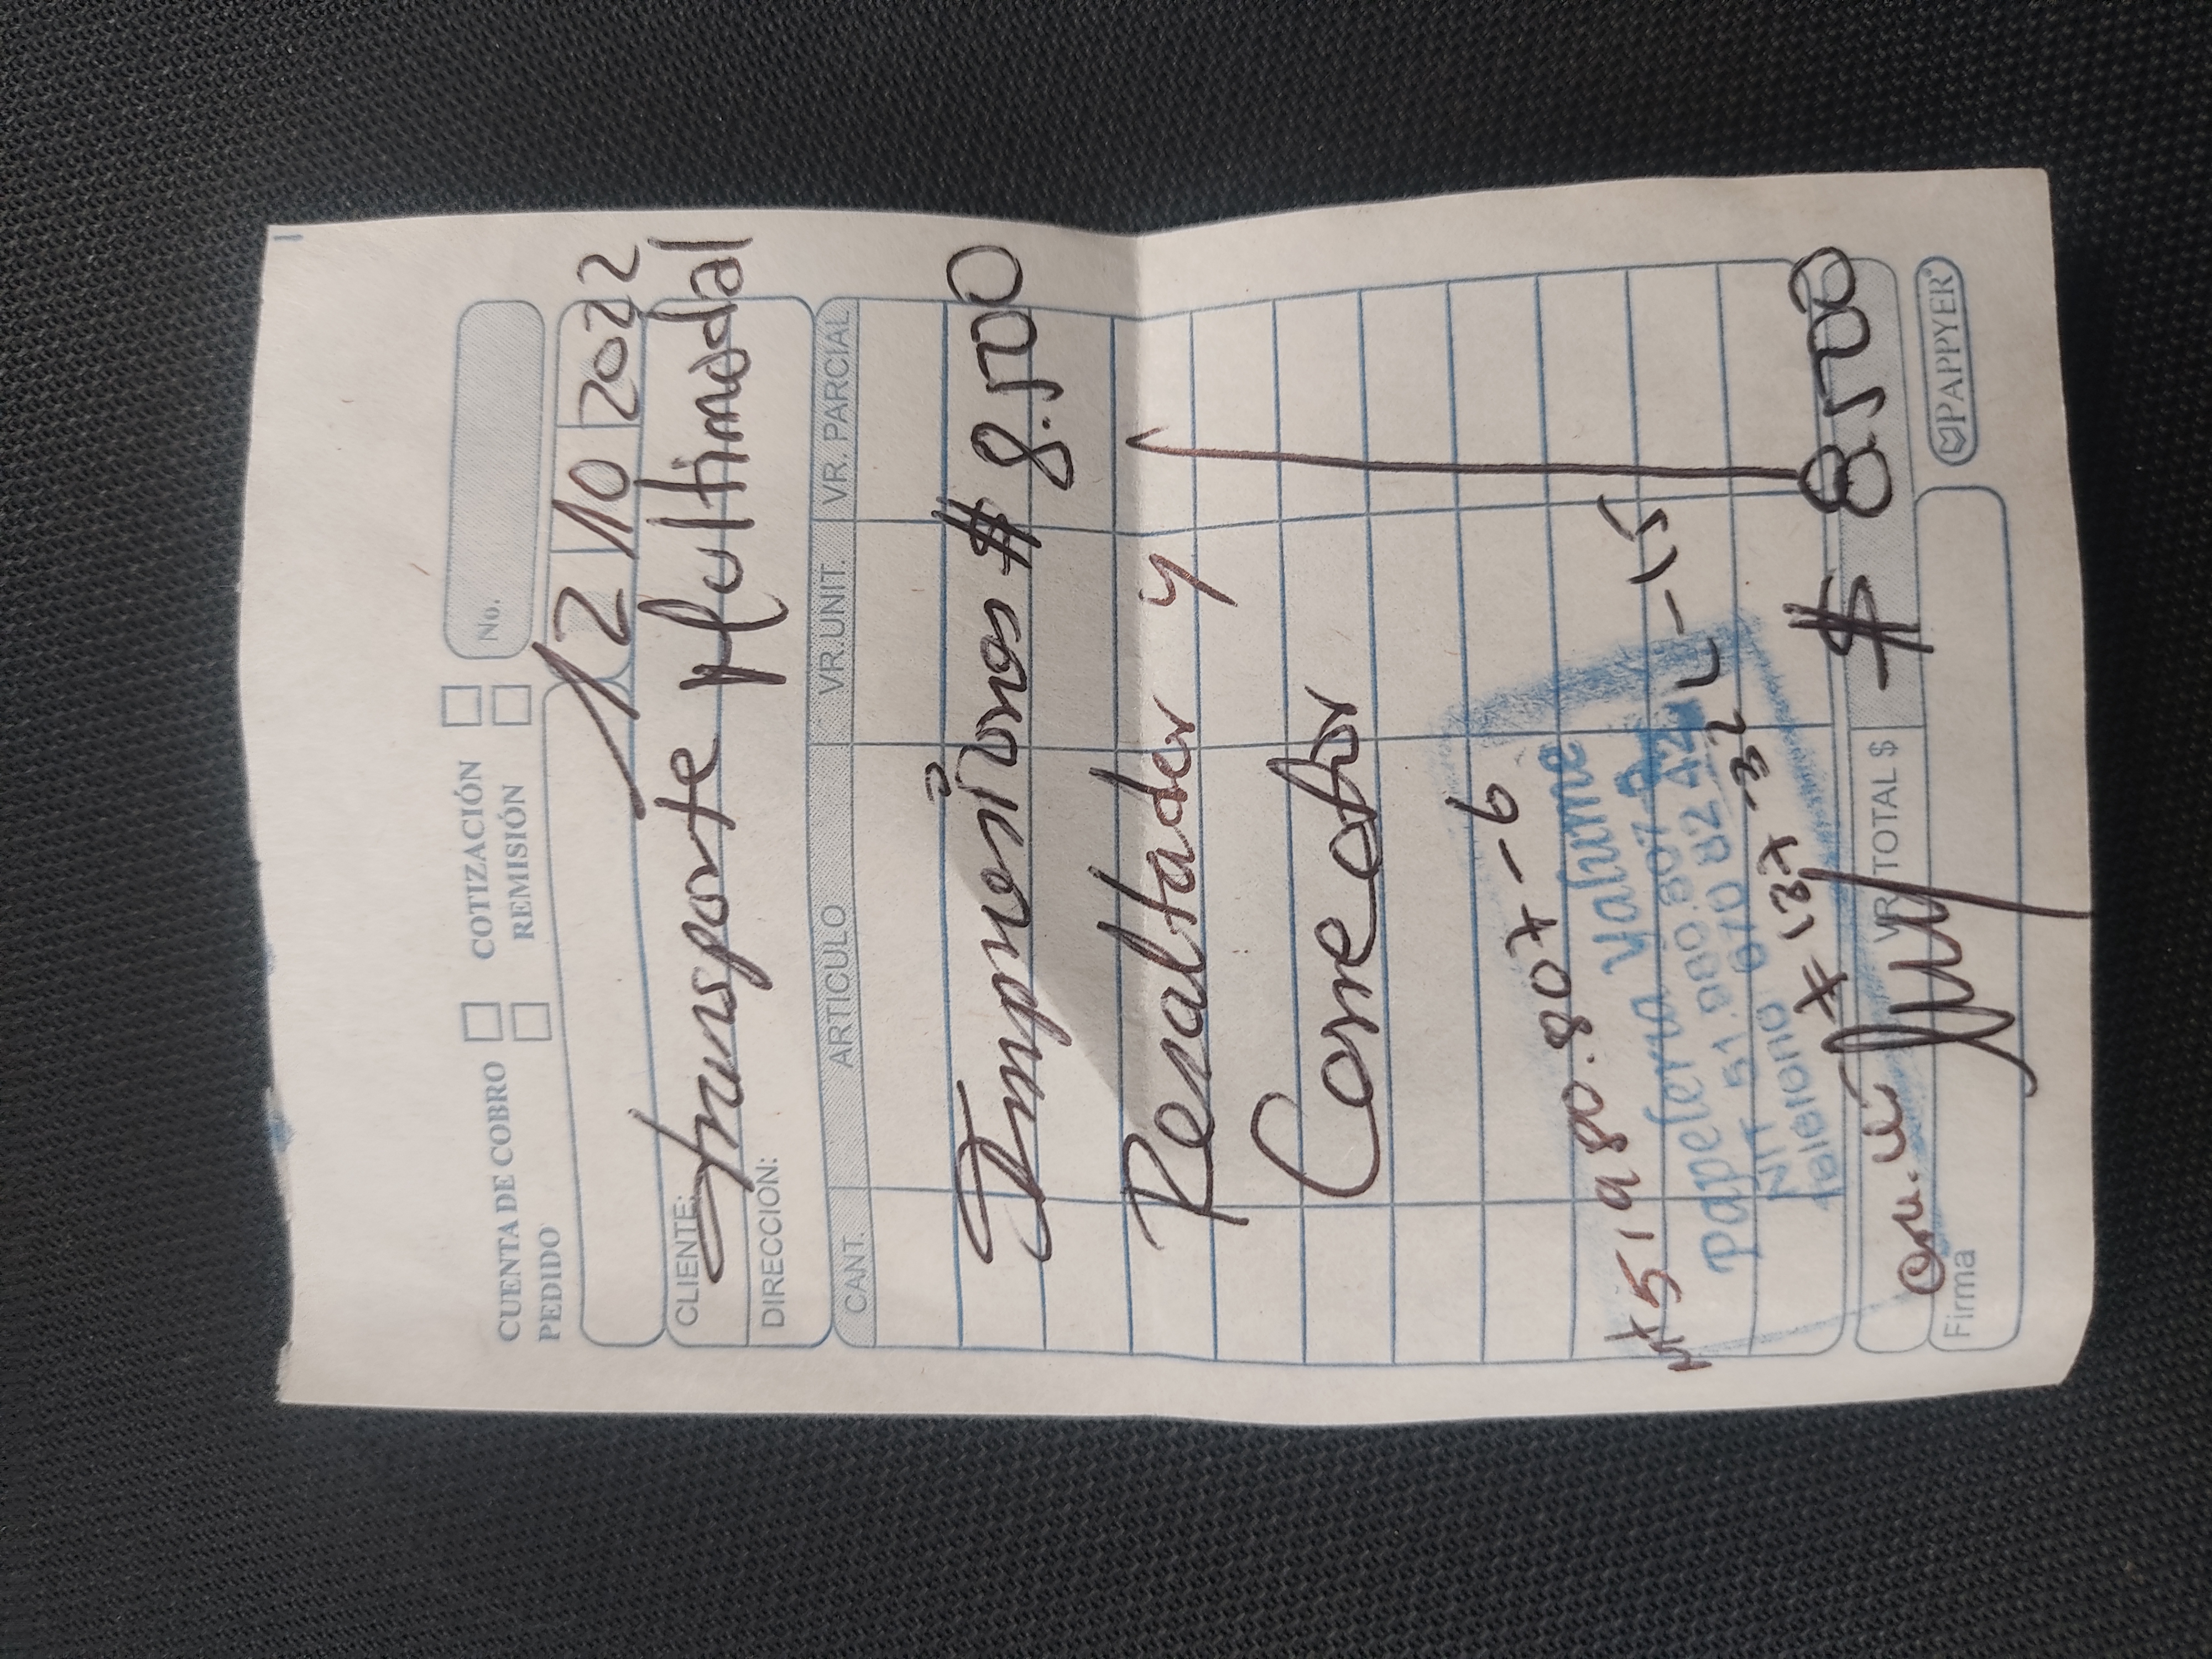 CUENTA DE COBRO COTIZACIÓN No.
PEDIDO REMISIÓN
12 10 2022
CLIENTE: transporte Multimodal
DIRECCION:
CANT. ARTICULO VR.UNIT. VR. PARCIAL
Impresiones $ 8.500
Resaltader y
Corrector
51980.807-6
Papeleria Yalume
NIT 51.980.807-6
Telefono
VR TOTAL $ $ 8.500
Firma
PAPPYER